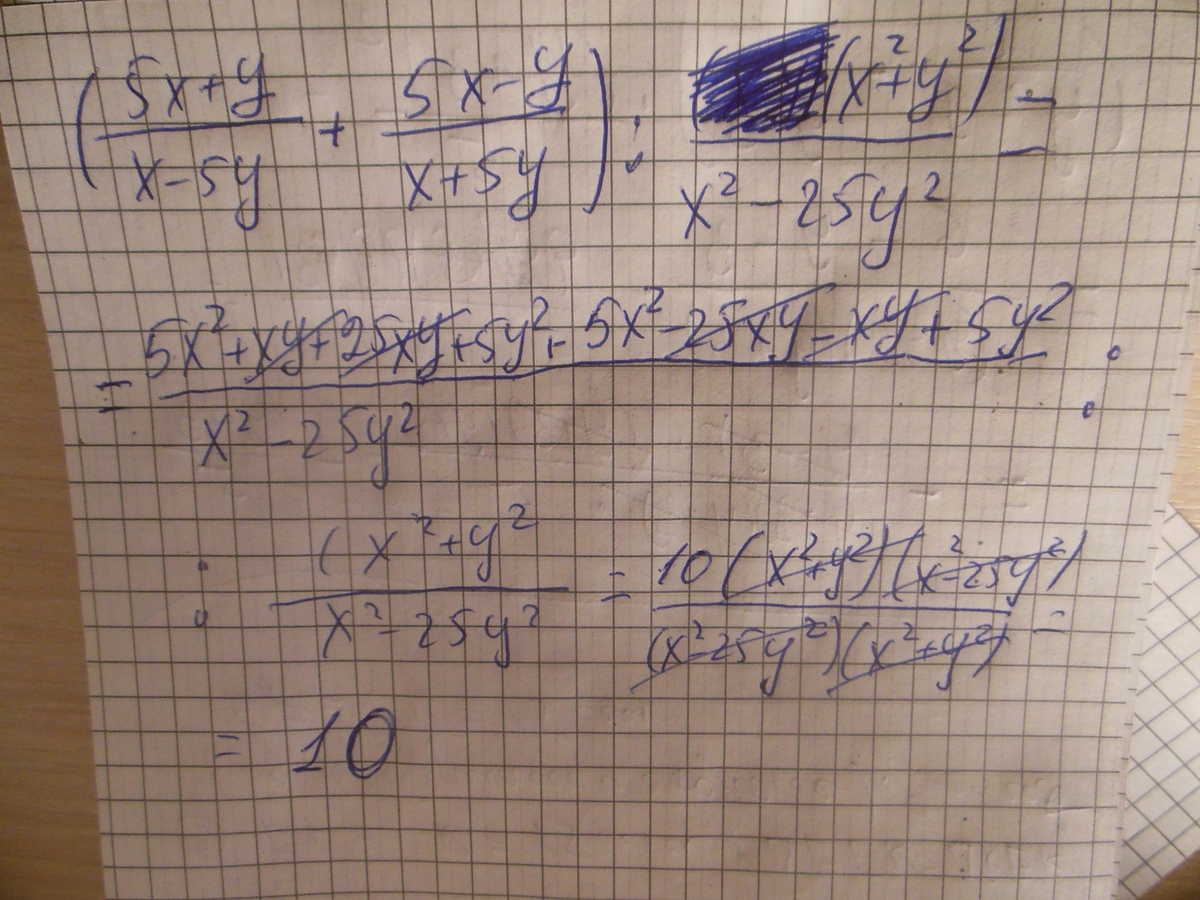 (5x+y / x-5y + 5x-y / x+5y) : (x²+y²) / x²-25y² =
= 5x²+xy+25xy+5y²+5x²-25xy-xy+5y² / x²-25y² :
: (x²+y² / x²-25y² = 10(x²+y²)(x²-25y²) / (x²-25y²)(x²+y²) =
= 10